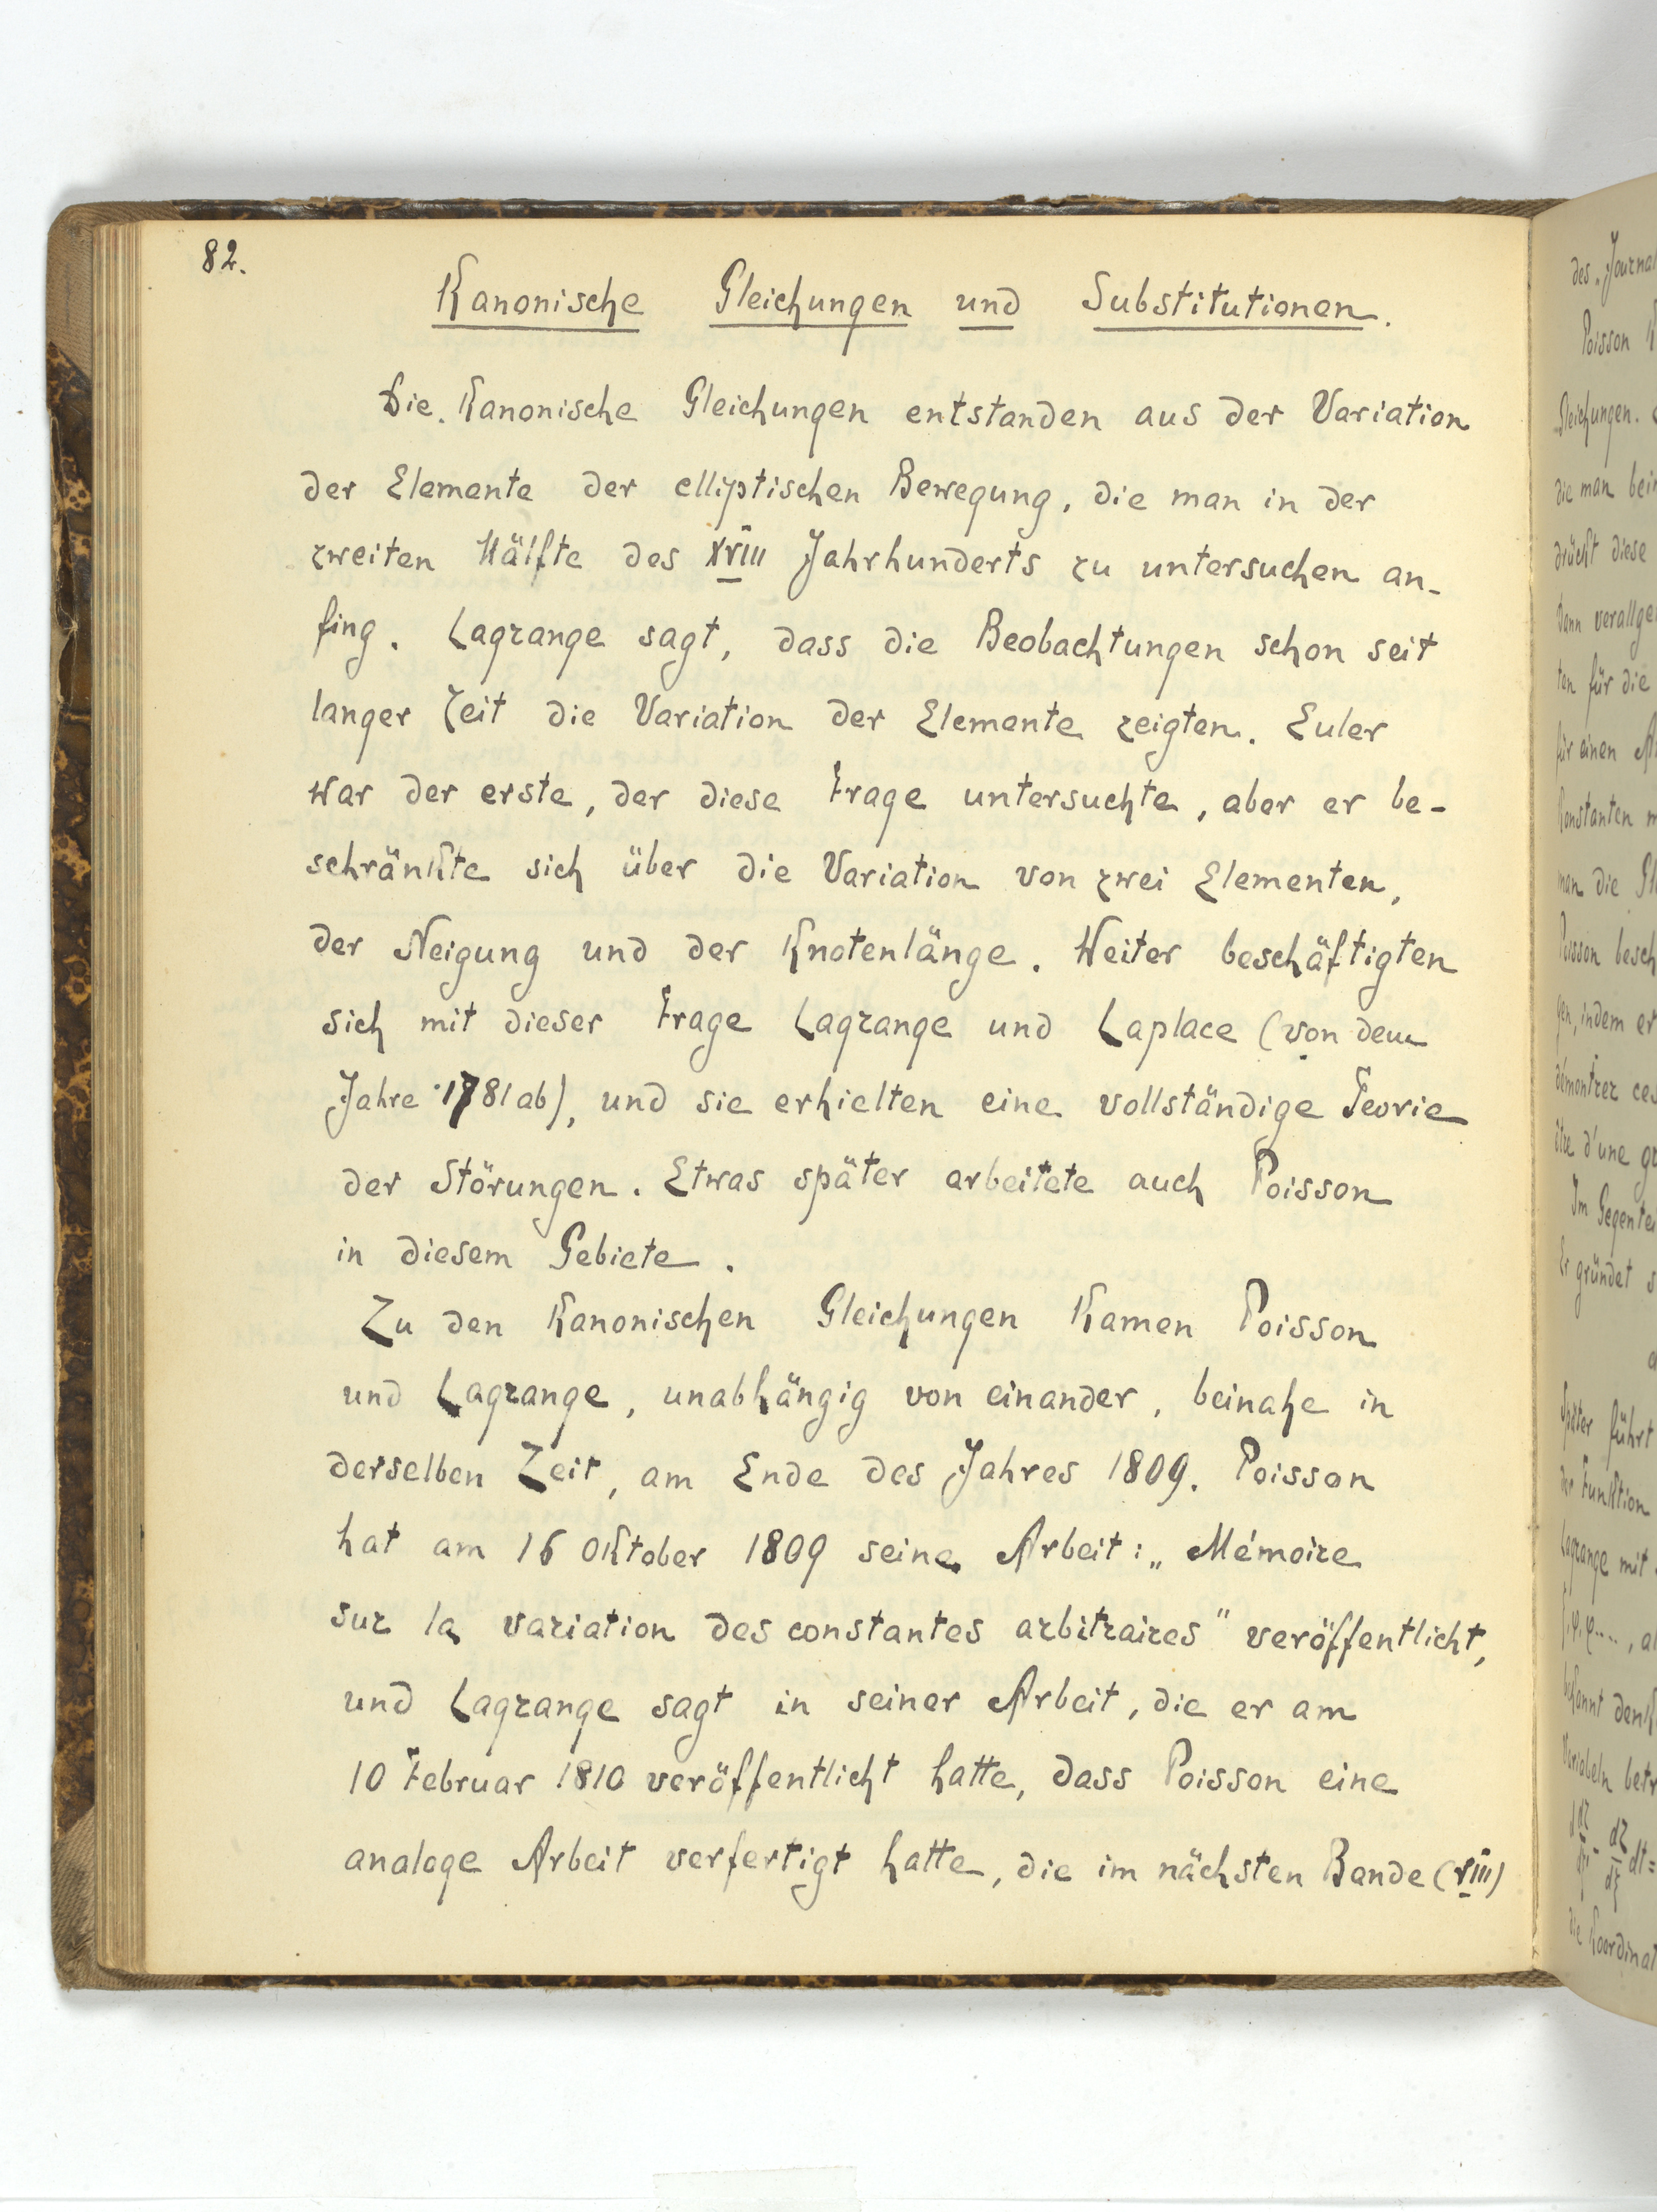 82.
Kanonische Gleichungen und Substitutionen.
Die Kanonische Gleichungen entstanden aus der Variation
der Elemente der elliptischen Bewegung, die man in der
zweiten Hälfte des XVIII Jahrhunderts zu untersuchen an-
fing. Lagrange sagt, dass die Beobachtungen schon seit
langer Zeit die Variation der Elemente zeigten. Euler
war der erste, der diese Frage untersuchte, aber er be-
schränkte sich über die Variation von zwei Elementen,
der Neigung und der Knotenlänge. Weiter beschäftigten
sich mit dieser Frage Lagrange und Laplace (von dem
Jahre 1781 ab), und sie erhielten eine vollständige Teorie
der Störungen. Etwas später arbeitete auch Poisson
in diesem Gebiete.
Zu den Kanonischen Gleichungen Kamen Poisson
und Lagrange, unabhängig von einander, beinahe in
derselben Zeit, am Ende des Jahres 1809. Poisson
hat am 16 Oktober 1809 seine Arbeit: „Mémoire
sur la variation des constantes arbitraires" veröffentlicht,
und Lagrange sagt in seiner Arbeit, die er am
10 Februar 1810 veröffentlicht hatte, dass Poisson eine
analoge Arbeit verfertigt hatte, die im nächsten Bande (VIII)
des „Journal
Poisson
Gleichungen.
die man bei
drückt diese
dann verallge
ten für die
für einen
Konstanten
man die Gl
Poisson besch
gen, indem er
démontrer ces
être d'une gr
Im Gegentei
Er gründet s
Später führt
der Funktion
Lagrange mit
bekannt denk
Variabeln betr
die Koordinat